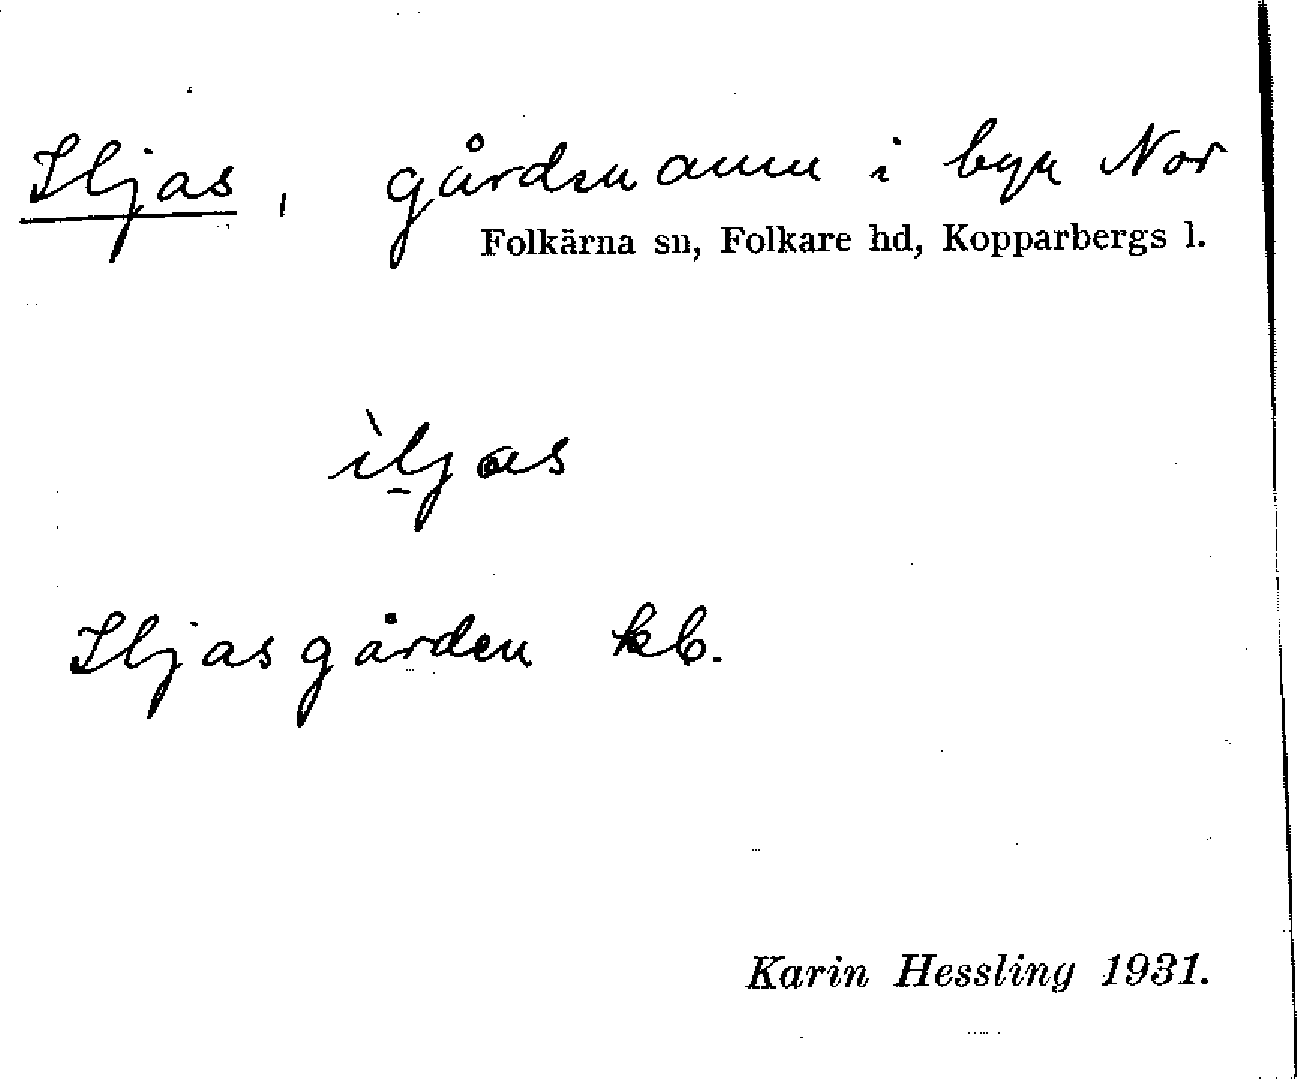 Iljas, gårdsnamn i byn Nor
Folkärna sn, Folkare hd, Kopparbergs l.
ìl̠jas
Iljasgården kb.
Karin Hessling 1931.